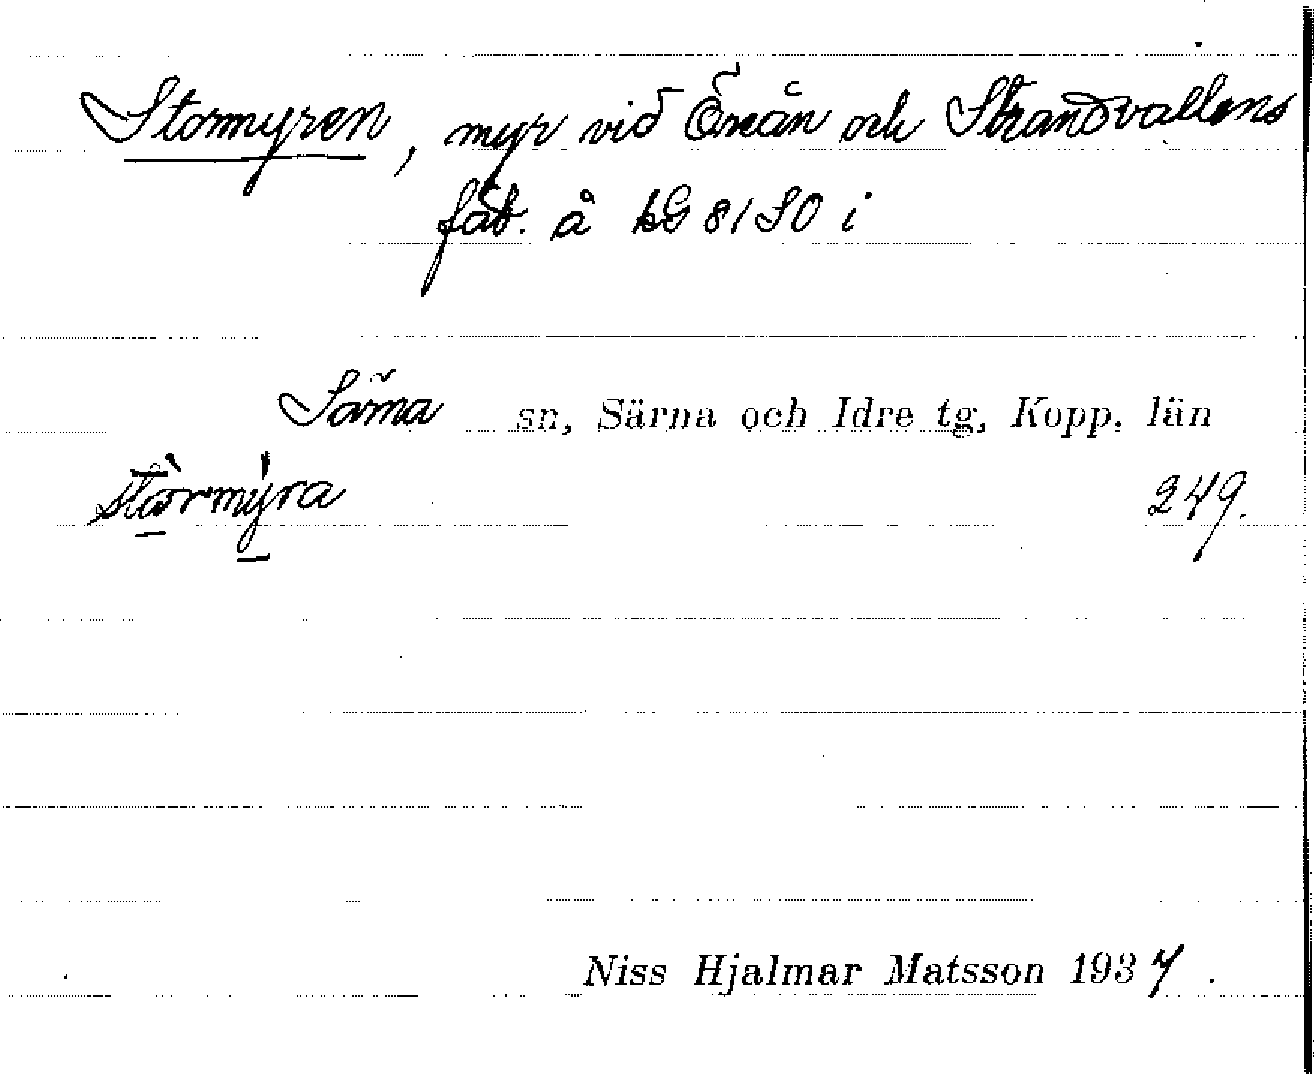 Stormyren, myr vid Önån och Strandvallens
fäb. å bG 81 SO i
Särna sn, Särna och Idre tg, Kopp. län
stòrmýra 249.
Niss Hjalmar Matsson 1937.